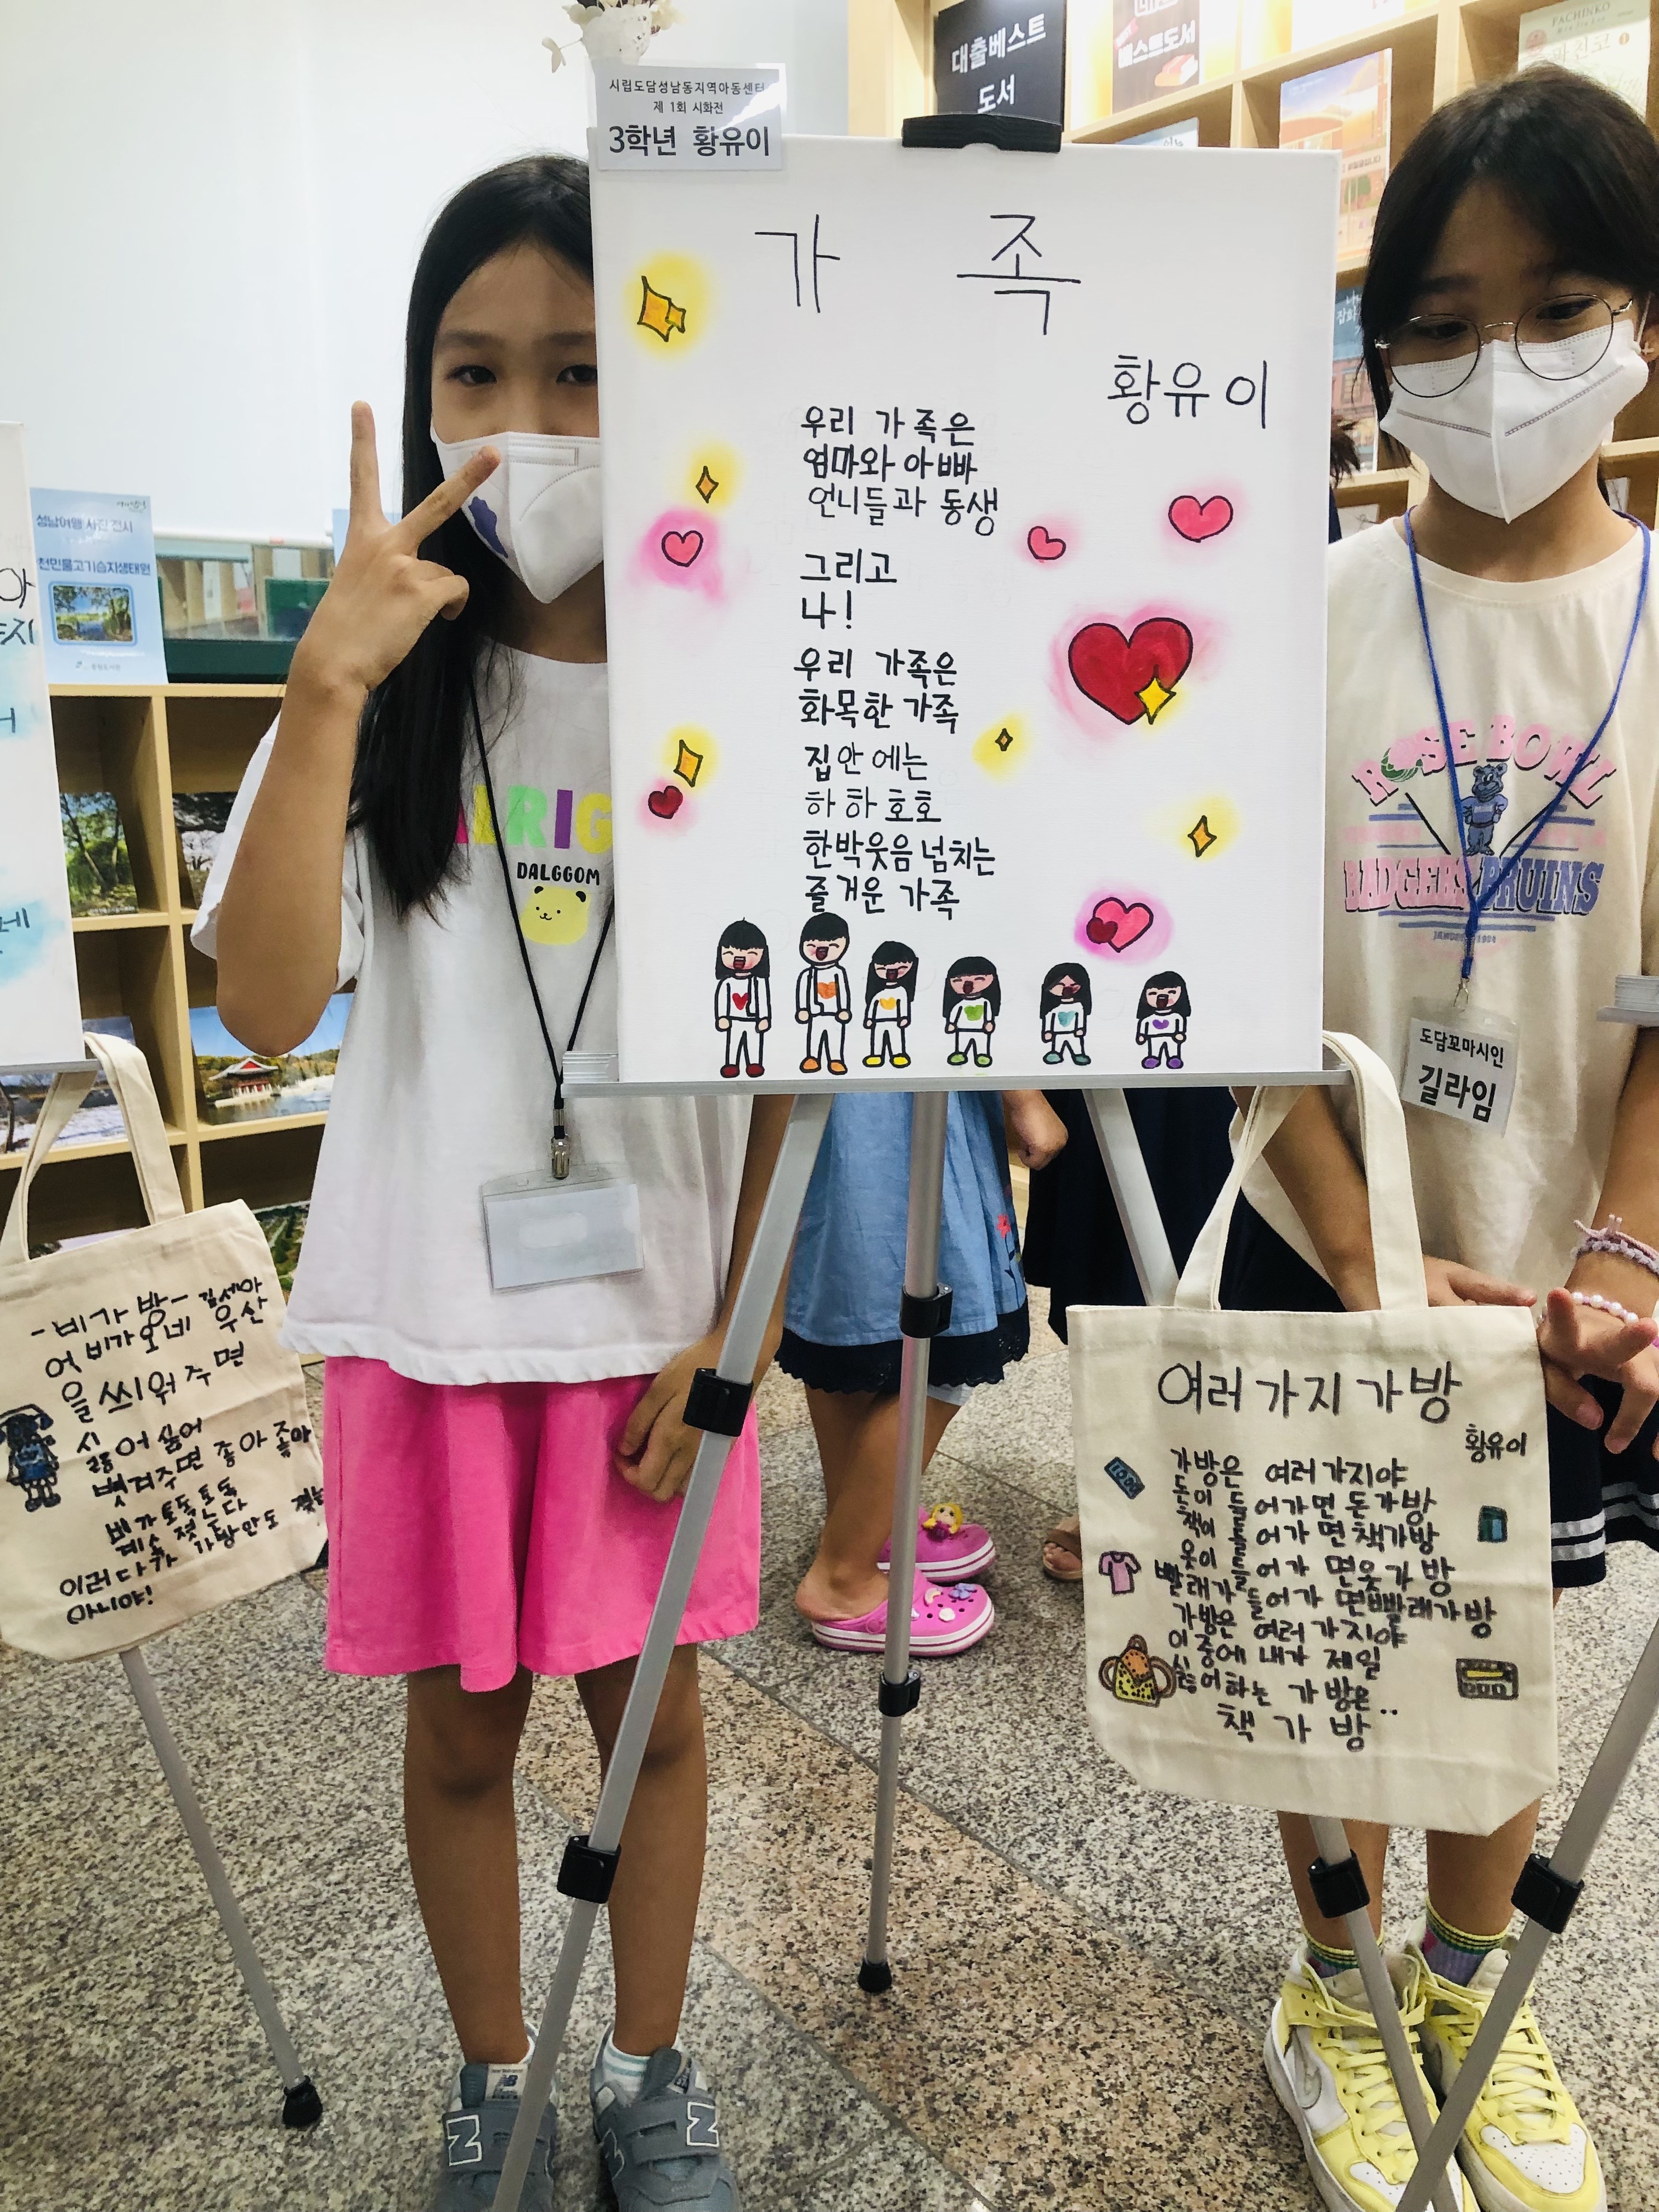 대출베스트
도서
베스트도서
PACHINKO
시립도담성남동지역아동센터
제 1회 시화전
3학년 황유이
가 족
황유이
우리 가족은
엄마와 아빠
언니들과 동생
그리고
나!
우리 가족은
화목한 가족
집안에는
하하호호
한박웃음넘치는
즐거운 가족
성남여행 사진 전시
천민물고기습지생태원
ALRIG
DALGGOM
ROSE BOWL
BADGERS BRUINS
도담꼬마시인
길라임
-비가 방- 김세아
어 비가오네 우산
을 씌워주면
싫어 싫어
벗겨주면 좋아 좋아
비가 토독토독
계속 젖는다
이러다가 가방안도
아니야!
여러가지가방
황유이
가방은 여러가지야
돈이 들어가면돈가방
책이 들어가면책가방
옷이 들어가면옷가방
빨래가들어가면빨래가방
가방은 여러가지야
이중에 내가 제일
싫어하는 가방은..
책 가 방
N
N